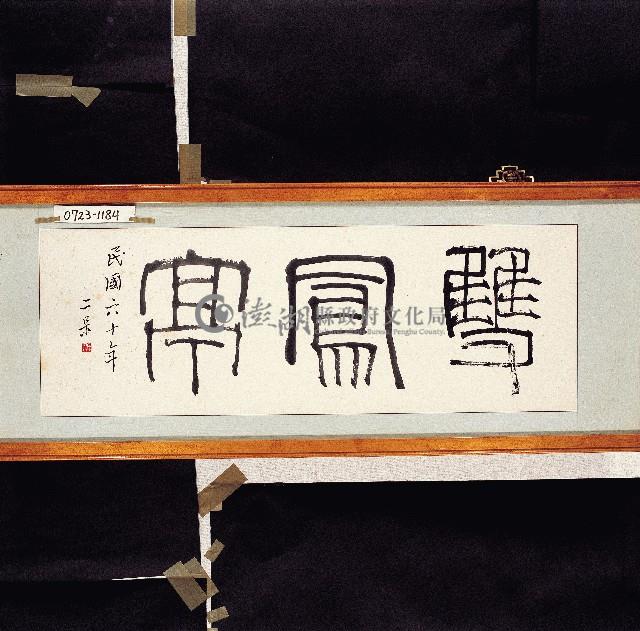 雙鳳亭
民國六十年
二呆
0723-1184
澎湖縣政府文化局
Bureau, Penghu County.